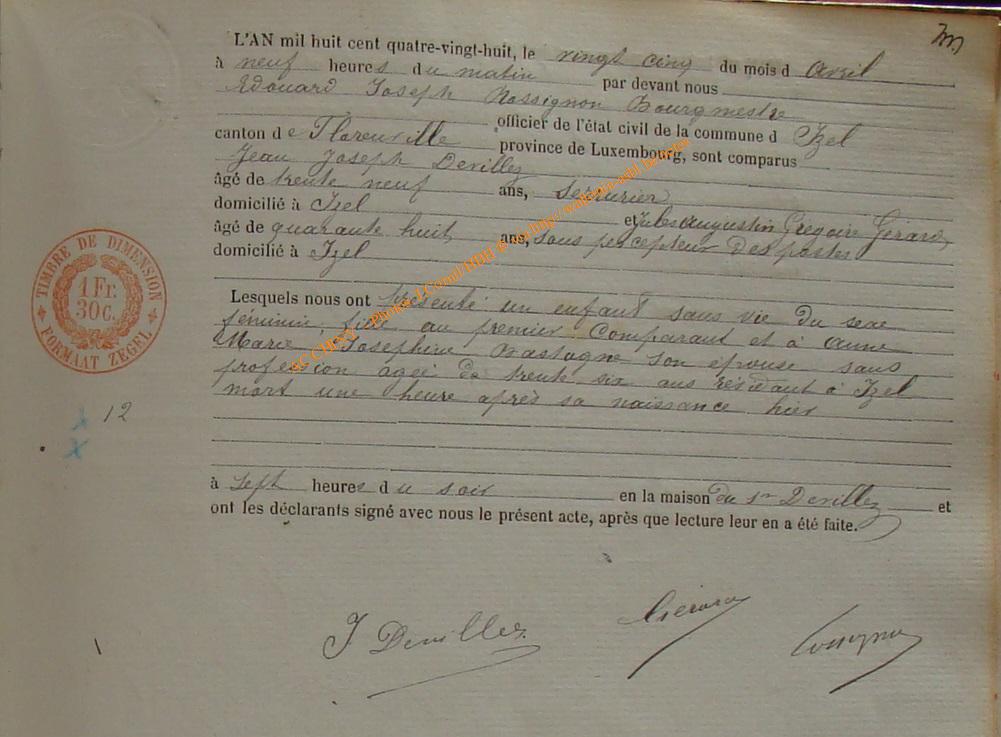 L'AN mil huit cent quatre-vingt-huit, le vingt cinq du mois d Avril
à neuf heures du matin par devant nous
Edouard Joseph Rossignon Bourgmestre
officier de l'état civil de la commune d Izel
canton de Florenville province de Luxembourg, sont comparus
Jean Joseph Devillez
âgé de trente neuf ans, Serrurier
domicilié à Izel et Jules Augustin Grégoire Gérard
âgé de quarante huit ans, sous percepteur des postes
domicilié à Izel
Lesquels nous ont présenté un enfant sans vie du sexe
féminin, fille au premier Comparant et à Anne
Marie Josephine Bastogne son épouse sans
profession agée de trente six ans résidant à Izel
mort une heure après sa naissance hier
à Sept heures du soir en la maison du Sr Devillez et
ont les déclarants signé avec nous le présent acte, après que lecture leur en a été faite.
J Devillez
Gérard
Rossignon
TIMBRE DE DIMENSION
1 Fr.
30 c.
FORMAAT ZEGEL
12